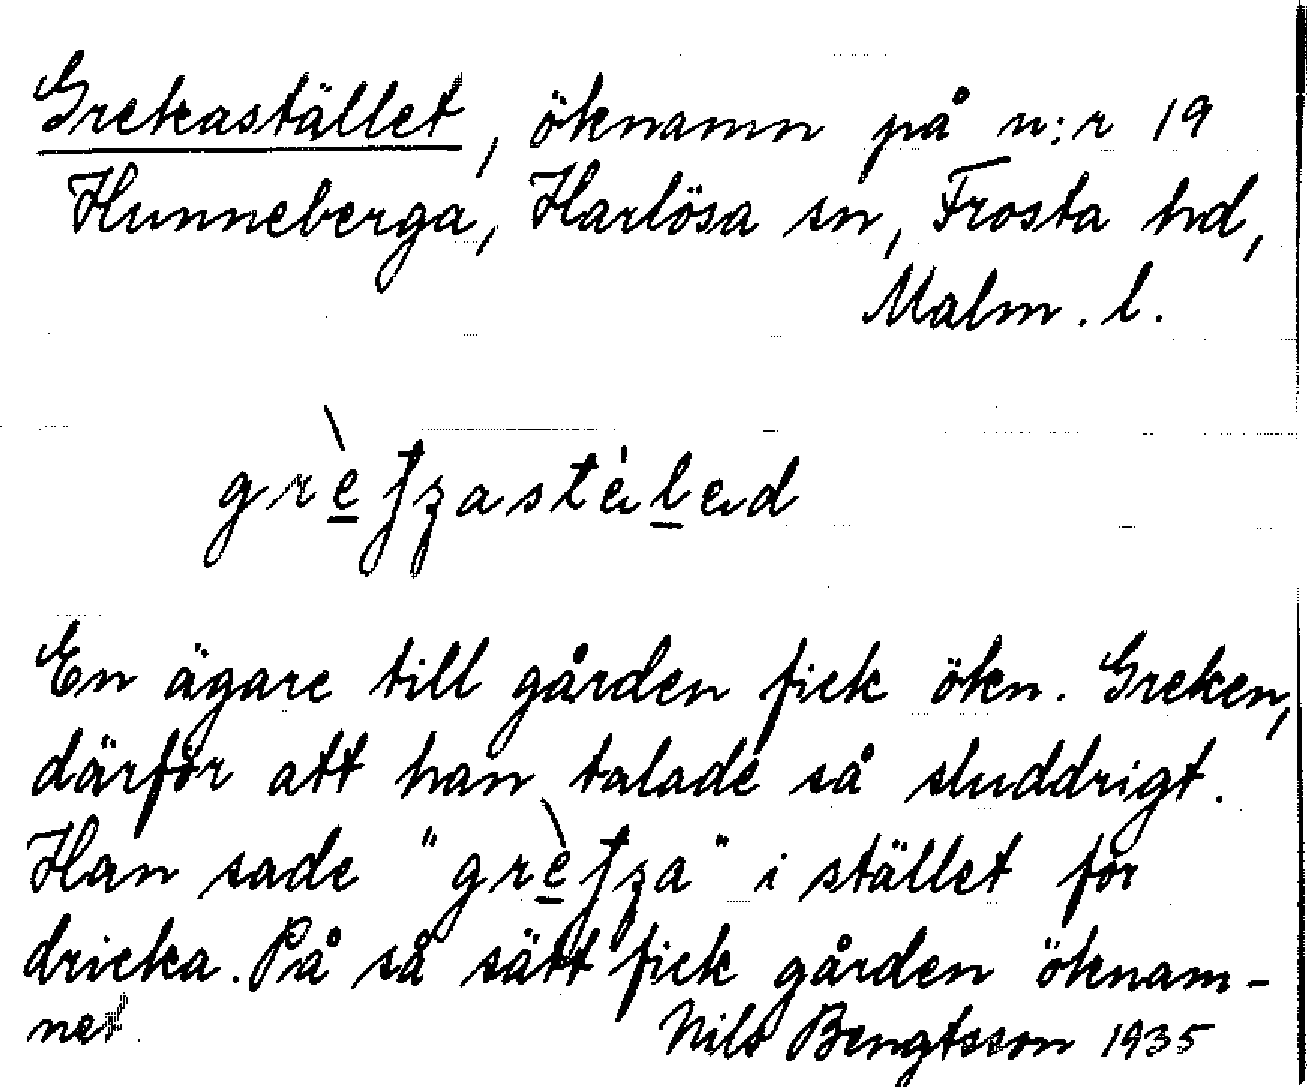 Grekastället, öknamn på n:r 19
Hunneberga, Harlösa sn, Frosta hd,
Malm. l.
En ägare till gården fick ökn. Greken,
därför att han talade så sluddrigt.
Han sade " " i stället för
dricka. På så sätt fick gården öknam-
net.
Nils Bengtsson 1935